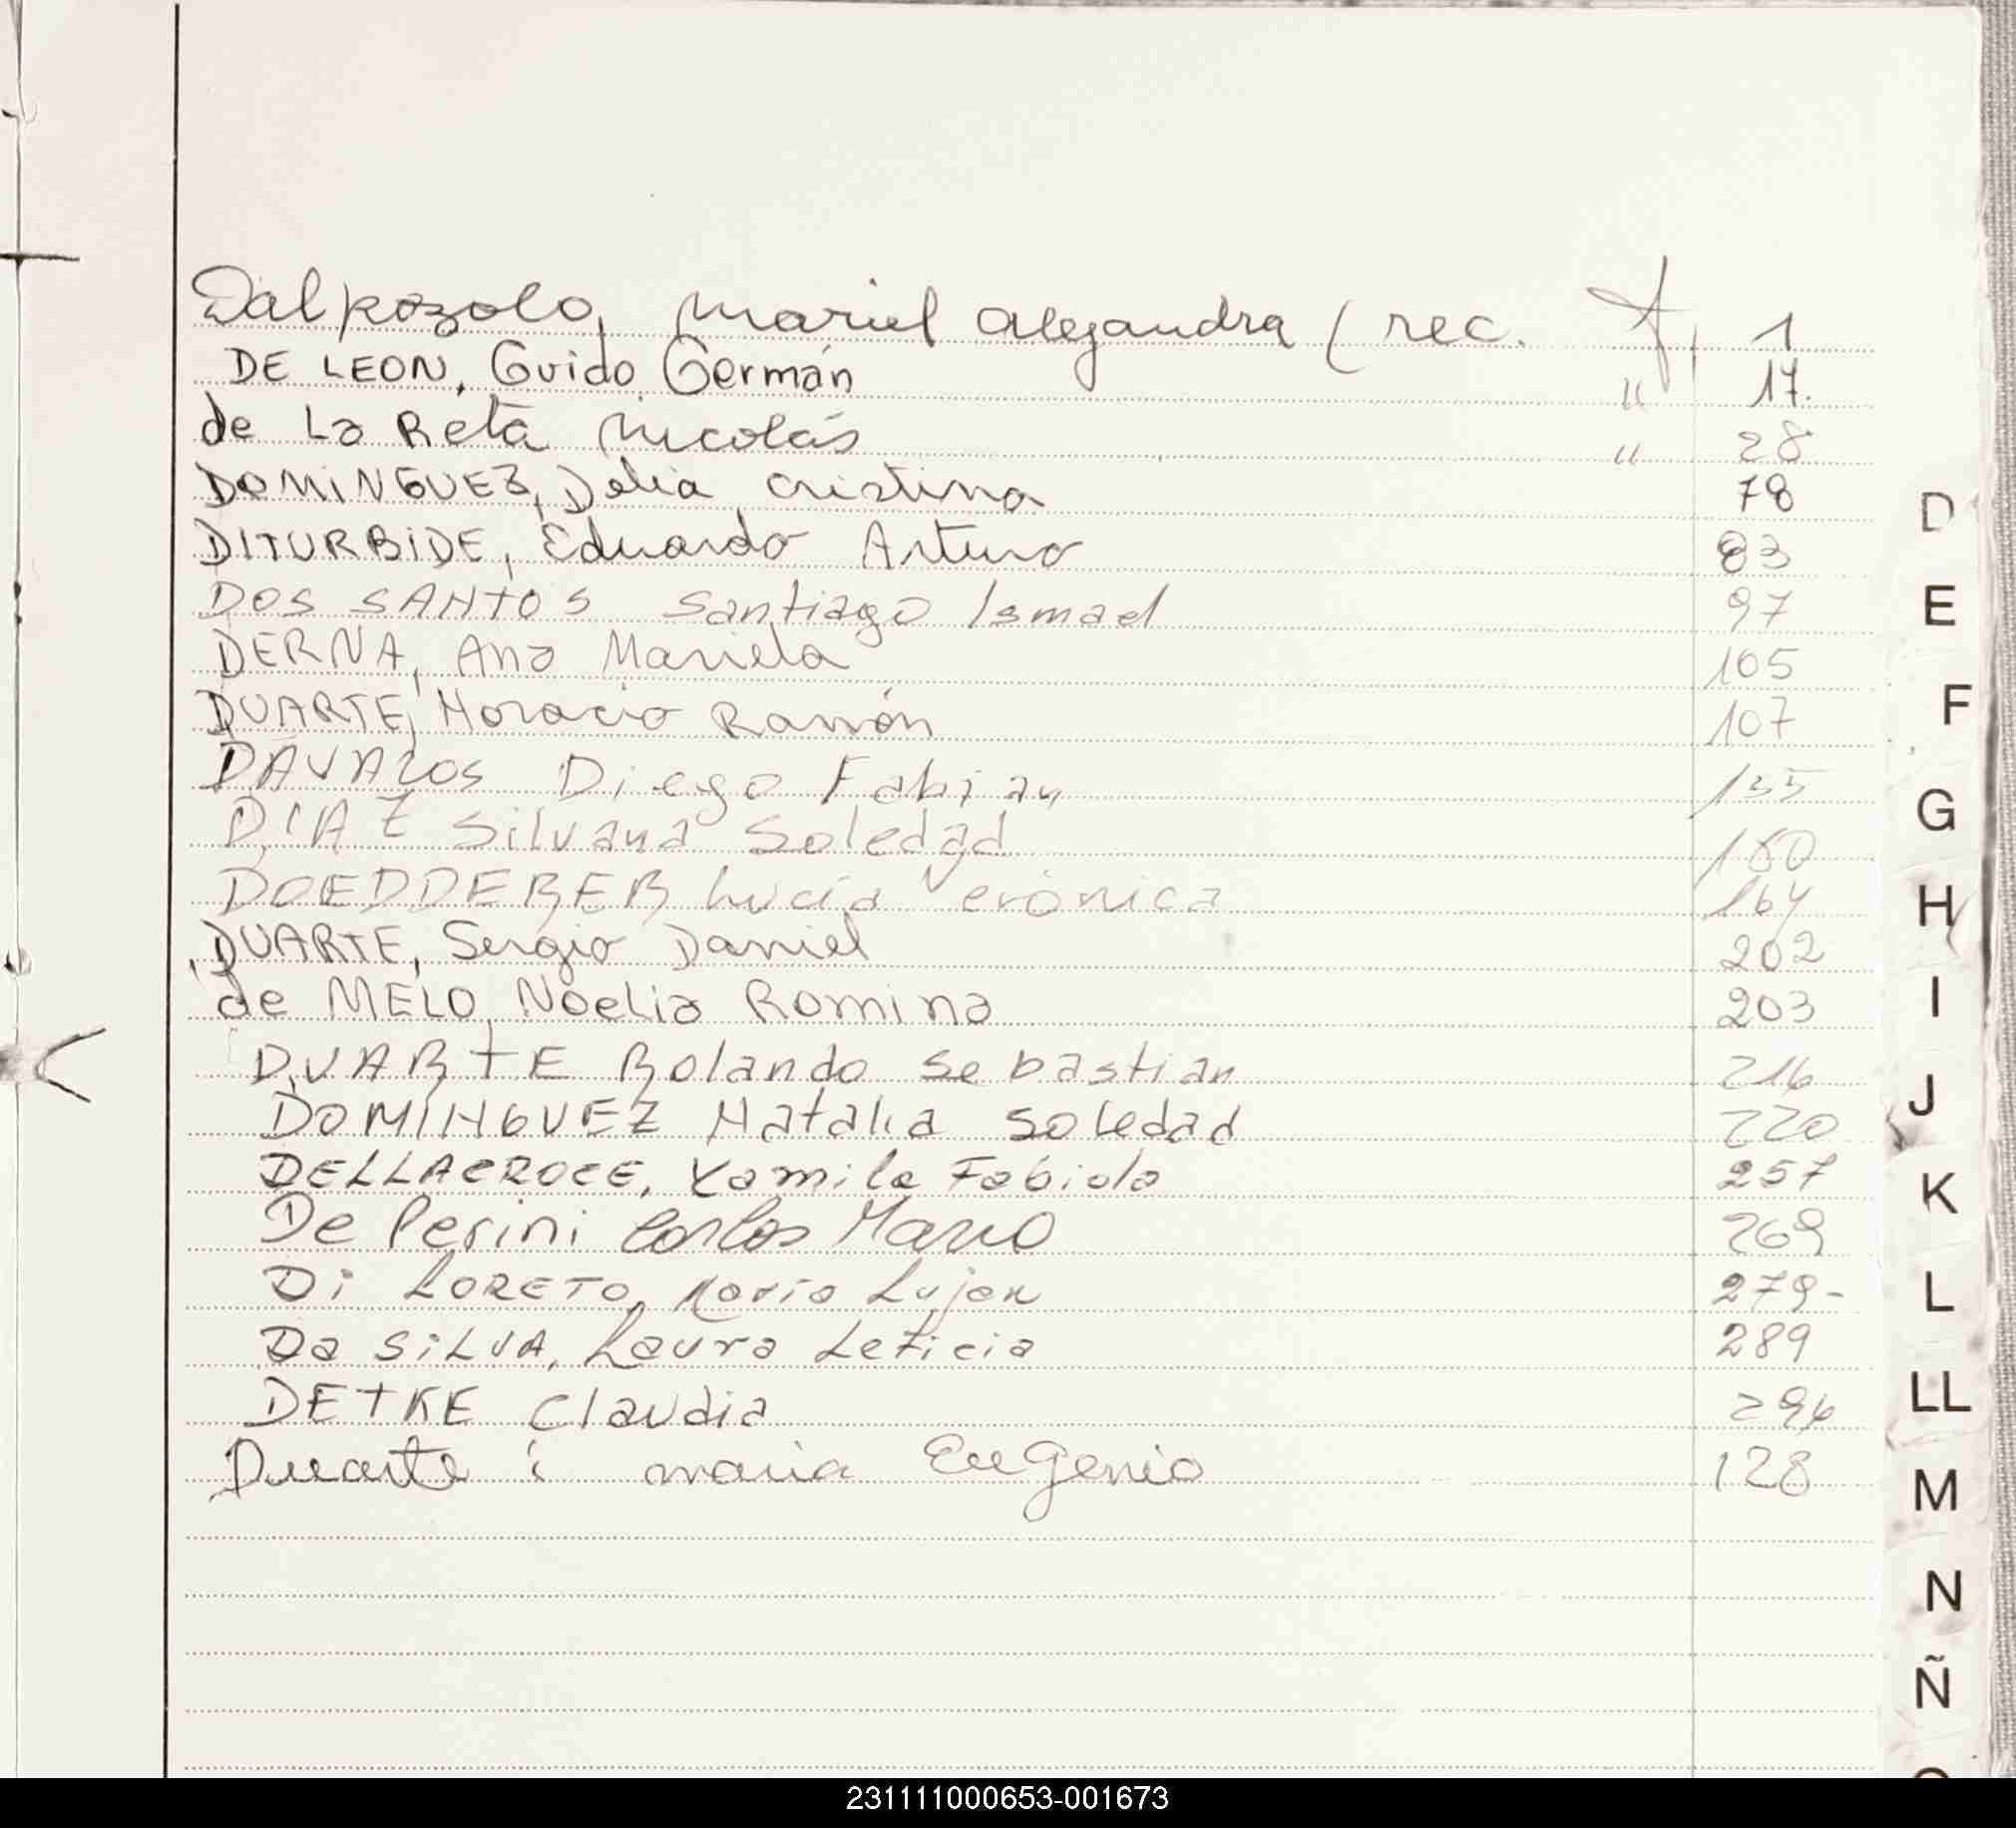 Dalpozolo, Mariel Alejandra (rec. A, 1
DE LEON, Guido Germán " 17.
de La Reta Nicolás " 28
DOMINGUEZ, Delia Cristina 78
DITURBIDE, Eduardo Arturo 83
DOS SANTOS Santiago Ismael 97
DERNA, Ana Mariela 105
DUARTE, Horacio Ramón 107
DAVALOS Diego Fabian 155
DIAZ Silvana Soledad 160
DOEDDERER Lucía Verónica 164
DUARTE, Sergio Daniel 202
de MELO, Noelia Romina 203
DUARTE Rolando Sebastian 216
DOMINGUEZ Natalia Soledad 220
DELLACROCE, Yamila Fabiola 257
De Perini Carlos Mario 269
Di LORETO, María Lujan 279-
Da SILVA, Laura Leticia 289
DETKE Claudia 296
Duarte; maria Eugenia 128
D
E
F
G
H
I
J
K
L
LL
M
N
Ñ
231111000653-001673